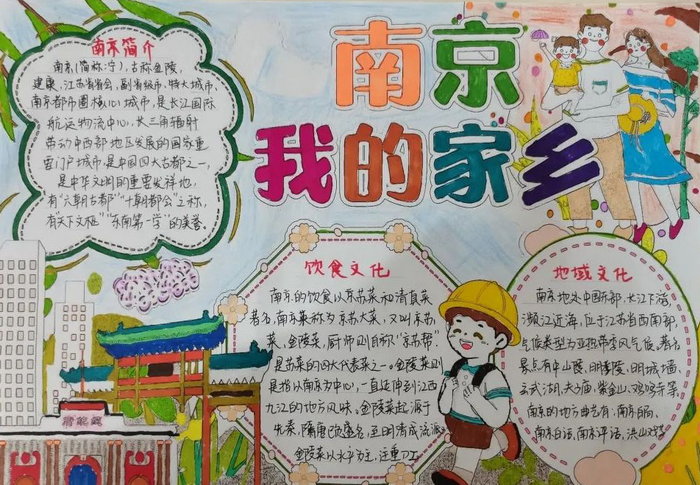 南京
我的家乡
南京简介
南京(简称:宁),古称金陵,
建康,江苏省省会,副省级市,特大城市,
南京都市圈核心城市,是长江国际
航运物流中心,长三角辐射
带动中西部地区发展的国家重
要门户城市,是中国四大古都之一,
是中华文明的重要发祥地,
有"六朝古都""十朝都会"之称,
有"天下文枢""东南第一学"的美誉。
饮食文化
南京的饮食以京苏菜和清真菜
著名,南京菜称为京苏大菜,又叫京苏
菜、金陵菜,厨师则自称"京苏帮"
是苏菜的四大代表菜之一。金陵菜则
是指以南京为中心,一直延伸到江西
九江的地方风味,金陵菜起源于
先秦,隋唐已盛名,至明清成流派
金陵菜以水产为主,注重刀工
地域文化
南京地处中国东部、长江下游
濒江近海,位于江苏省西南部,
气候类型为亚热带季风气候。著名
景点有中山陵、明孝陵、明城墙、
玄武湖、夫子庙、紫金山、鸡鸣寺等
南京的地方曲艺有:南京白局、
南京白话、南京评话、洪山